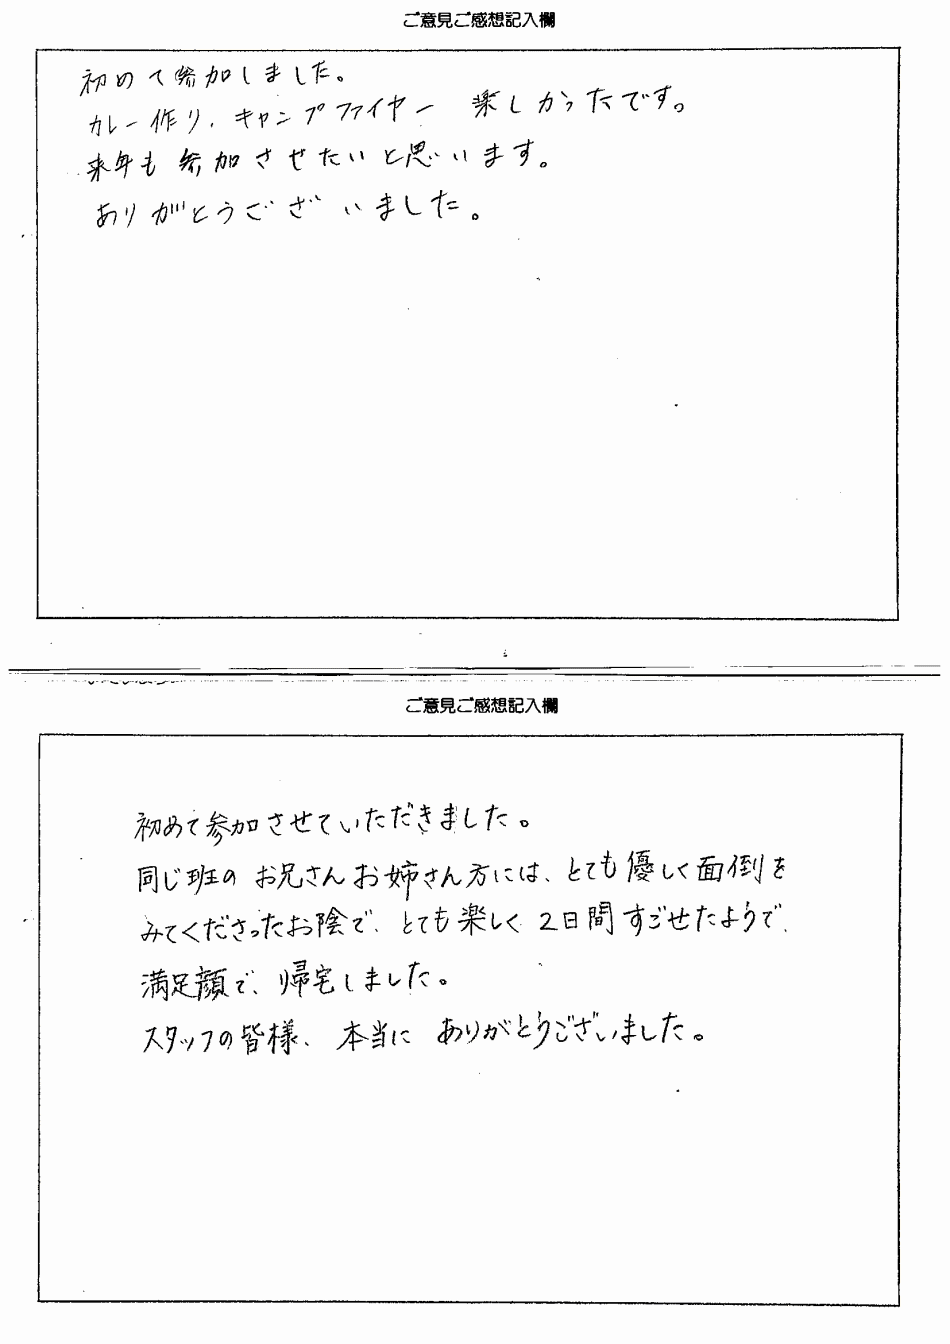 ご意見ご感想記入欄
初めて参加しました。
カレー作り、キャンプファイヤー 楽しかったです。
来年も参加させたいと思います。
ありがとうございました。
ご意見ご感想記入欄
初めて参加させていただきました。
同じ班の お兄さんお姉さん方には、とても優しく面倒を
みてくださったお陰で、とても楽しく 2日間すごせたようで、
満足顔で、帰宅しました。
スタッフの皆様、本当に ありがとうございました。